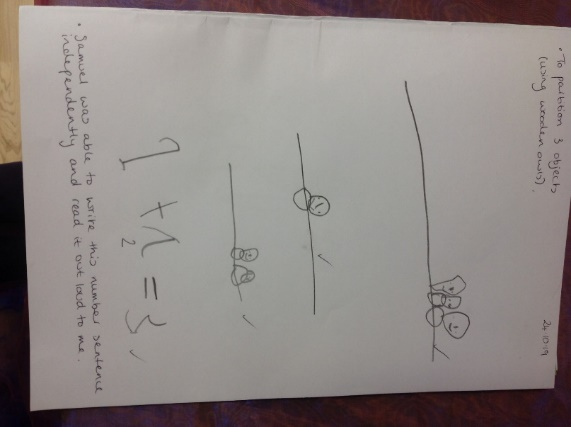 24.10.19
• To partition 3 objects
(using wooden owls).
1 + 2 = 3
2
• Samuel was able to write this number sentence
independently and read it out loud to me.